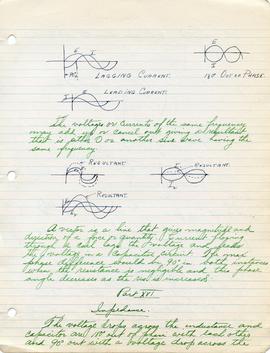 E I
90°
LAGGING CURRENT.
E
I
180° OUT OF PHASE.
I E
LEADING CURRENT
The voltages or currents of the same frequency
may add up or cancel out giving a resultant
that is either 0 or another sine wave having the
same frequency.
RESULTANT
RESULTANT.
RESULTANT
A vector is a line that gives magnitude and
direction of a force or quantity. Current flowing
through a coil lags the voltage and leads
the voltage in a capacitor circuit. The max
phase difference would be 90° in both instances
when the resistance is negligible and this phase
angle decreases as the res is increased.
Part XVI
Impedance.
The voltage drops across the inductance and
capacitor are 180° out of phase with each other
and 90° out with a voltage drop across the